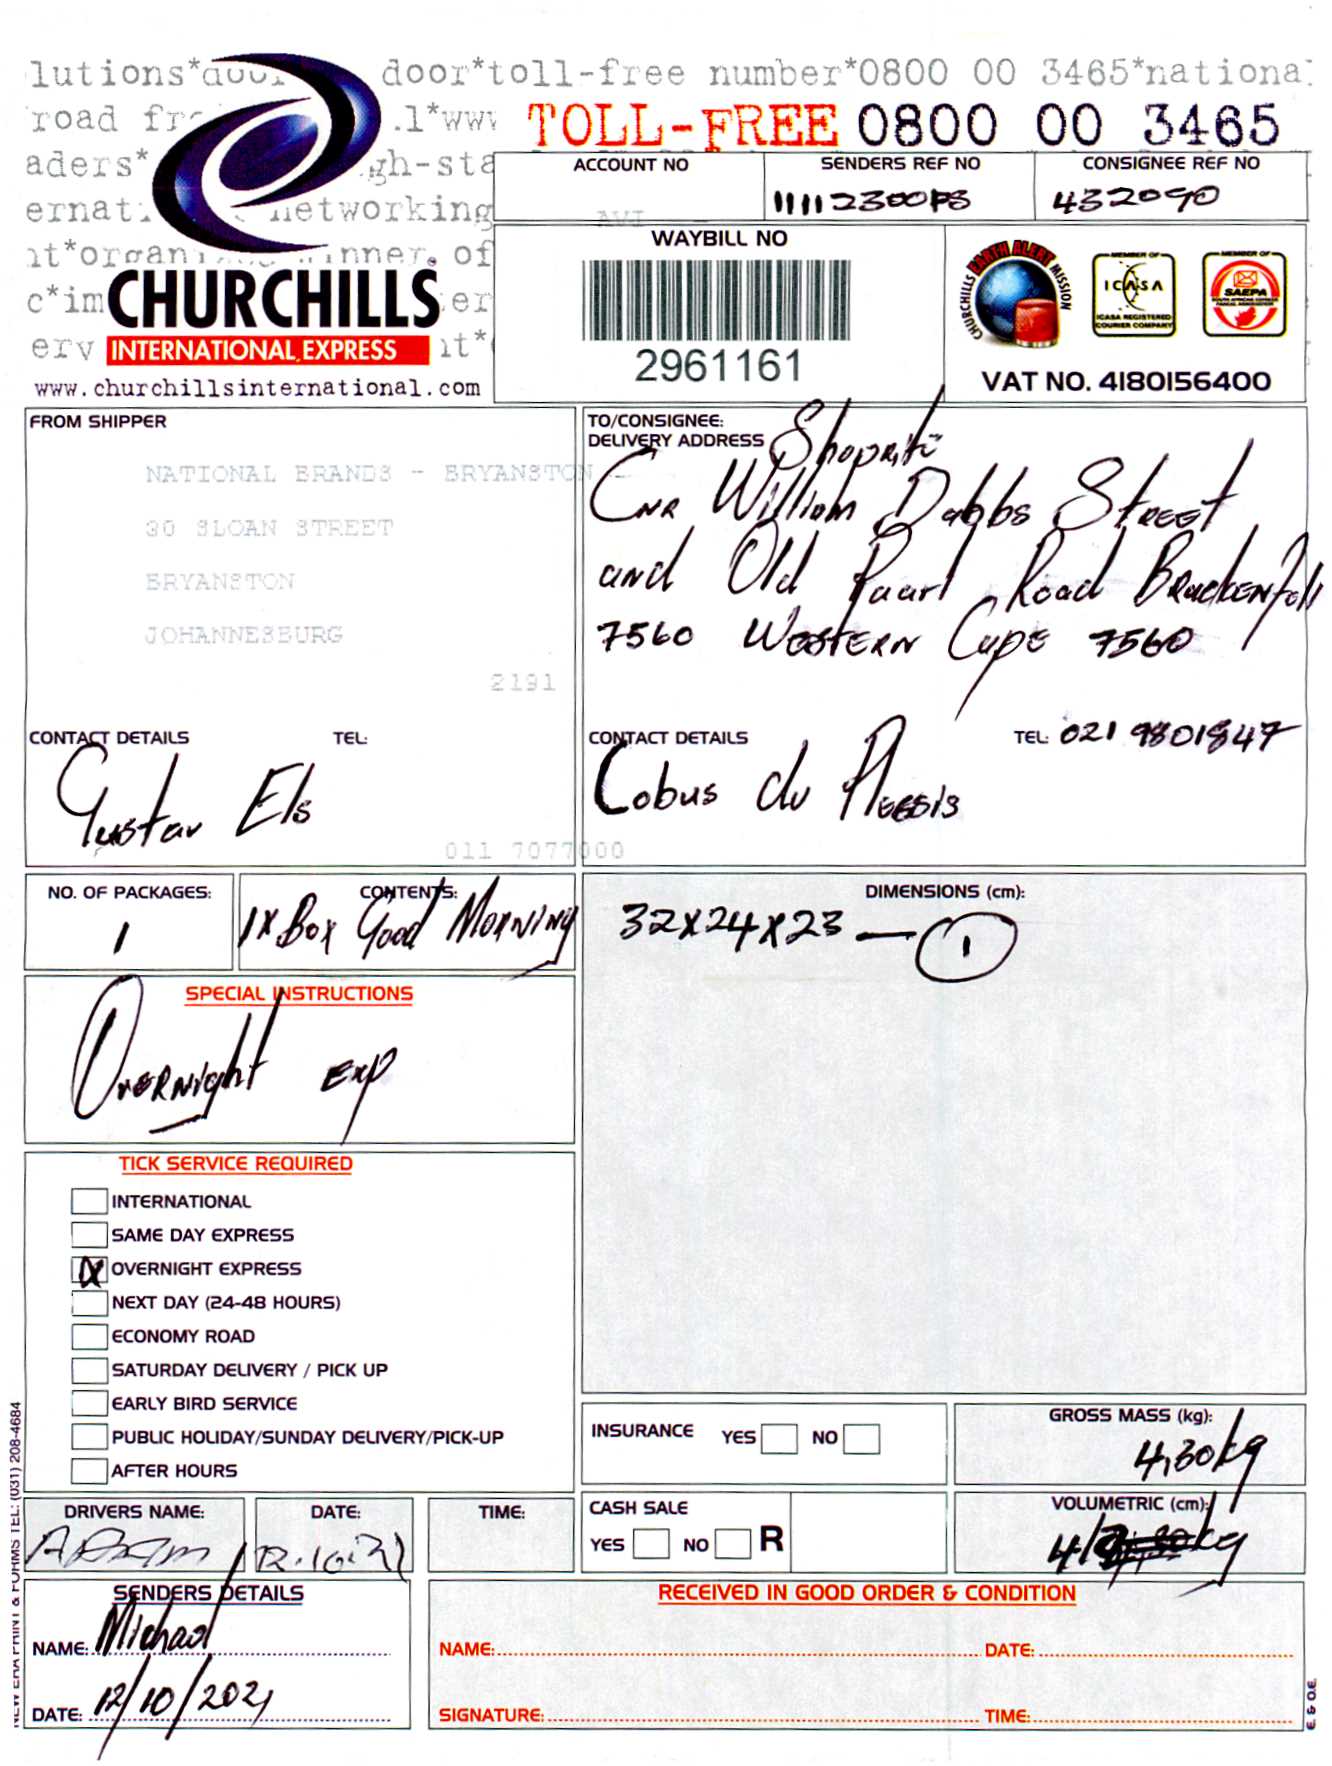 lutions*door door*toll-free number*0800 00 3465*national
road .l*www
TOLL-FREE 0800 00 3465
aders* gh-sta
ernat networking
nt*organi winner of
c*im er
erv nt*
CHURCHILLS
INTERNATIONAL EXPRESS
www.churchillsinternational.com
ACCOUNT NO
AVI
SENDERS REF NO
11112300PS
CONSIGNEE REF NO
432090
WAYBILL NO
2961161
CHURCHILLS EARTH ALERT MISSION
MEMBER OF
ICASA
ICASA REGISTERED
COURIER COMPANY
MEMBER OF
SAEPA
VAT NO. 4180156400
FROM SHIPPER
NATIONAL BRANDS - BRYANSTON -
30 SLOAN STREET
BRYANSTON
JOHANNESBURG
2191
CONTACT DETAILS TEL:
Gustav Els
011 7077000
TO/CONSIGNEE:
DELIVERY ADDRESS Shoprite
Cnr William Dabbs Street
and Old Paarl Road Brackenfell
7560 Western Cape 7560
CONTACT DETAILS TEL: 021 9801847
Cobus du Plessis
NO. OF PACKAGES:
1
CONTENTS:
1x Box Good Morning
DIMENSIONS (cm):
32x24x23 — 1
SPECIAL INSTRUCTIONS
Overnight exp
TICK SERVICE REQUIRED
INTERNATIONAL
SAME DAY EXPRESS
X OVERNIGHT EXPRESS
NEXT DAY (24-48 HOURS)
ECONOMY ROAD
SATURDAY DELIVERY / PICK UP
EARLY BIRD SERVICE
PUBLIC HOLIDAY/SUNDAY DELIVERY/PICK-UP
AFTER HOURS
INSURANCE YES NO
GROSS MASS (kg):
4,30kg
CASH SALE
YES NO R
VOLUMETRIC (cm):
kg
DRIVERS NAME:
DATE:
12.10.21
TIME:
SENDERS DETAILS
NAME: Michael
DATE: 12/10/2021
RECEIVED IN GOOD ORDER & CONDITION
NAME: DATE:
SIGNATURE: TIME:
NEW ERA PRINT & FORMS TEL: (031) 208-4684
E. & O.E.